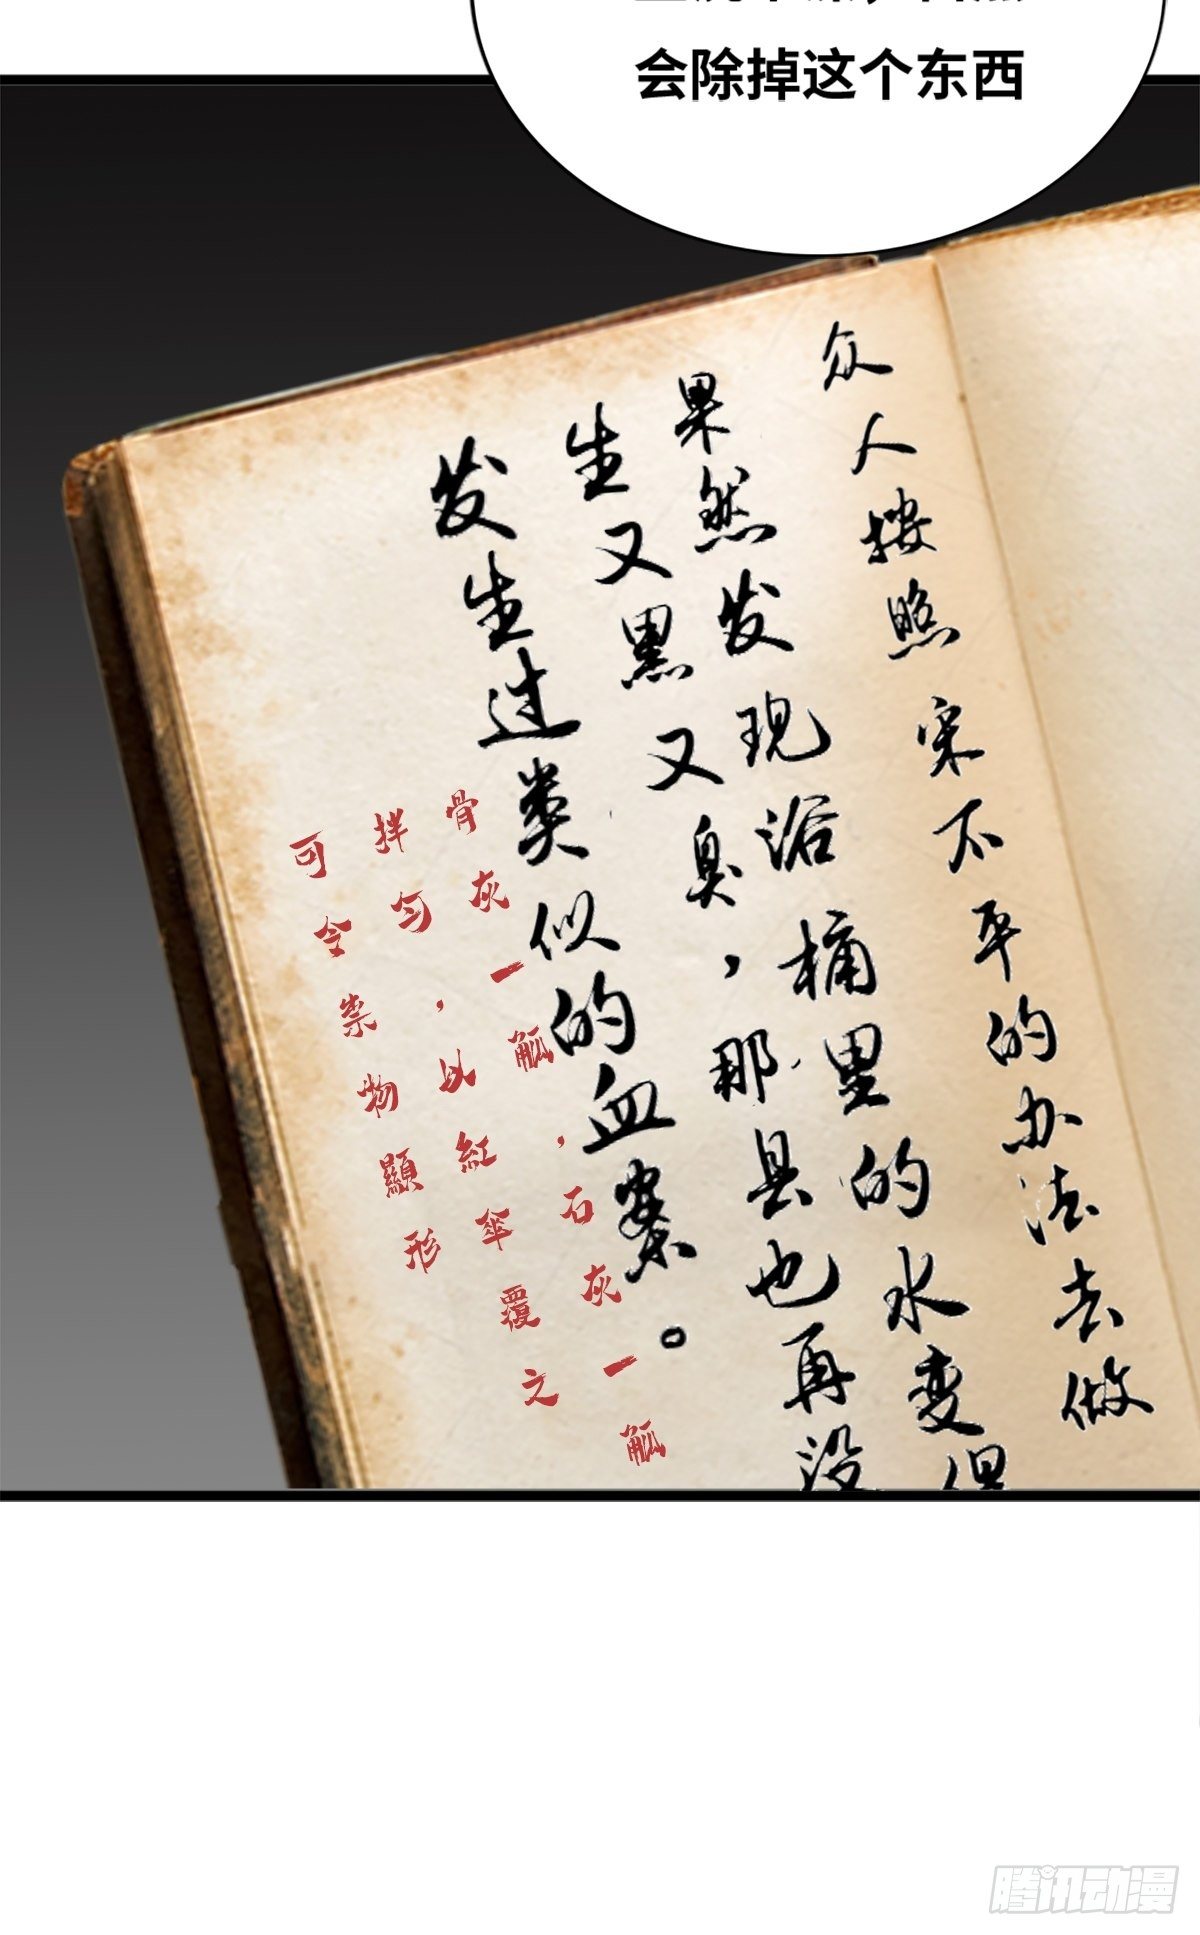 会除掉这个东西
众人按照宋不平的办法去做
果然发现浴桶里的水变得
生又黑又臭，那县也再没
发生过类似的血案。
骨灰一觚，石灰一觚
拌匀，以紅傘覆之
可令祟物顯形
腾讯动漫